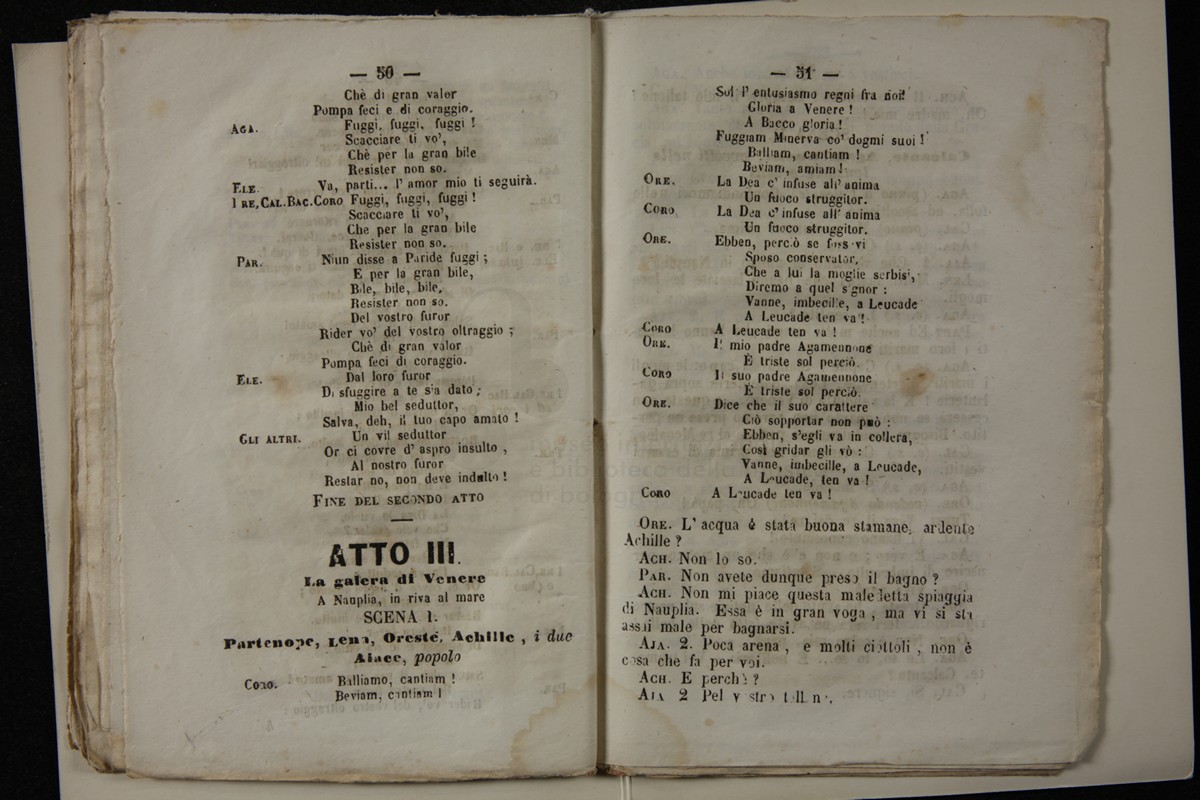 — 50 —
Chè di gran valor
Pompa feci e di coraggio.
AGA. Fuggi, fuggi, fuggi !
Scacciare ti vo',
Chè per la gran bile
Resister non so.
ELE. Va, parti... l' amor mio ti seguirà.
I RE, CAL. BAC. CORO Fuggi, fuggi, fuggi !
Scacciare ti vo',
Che per la gran bile
Resister non so.
PAR. Niun disse a Paride fuggi ;
E per la gran bile,
Bile, bile, bile,
Resister non so.
Del vostro furor
Rider vo' del vostro oltraggio ;
Chè di gran valor
Pompa feci di coraggio.
ELE. Dal loro furor
Di sfuggire a te sia dato ;
Mio bel seduttor,
Salva, deh, il tuo capo amato !
GLI ALTRI. Un vil seduttor
Or ci covre d' aspro insulto ,
Al nostro furor
Restar no, non deve indulto !
FINE DEL SECONDO ATTO
ATTO III.
La galera di Venere
A Nauplia, in riva al mare
SCENA I.
Partenope, Lena, Oreste, Achille , i due
Aiace, popolo
CORO. Balliamo, cantiam !
Beviam, cantiam !
— 51 —
Sol l' entusiasmo regni fra noi!
Gloria a Venere !
A Bacco gloria !
Fuggiam Minerva co' dogmi suoi !
Balliam, cantiam !
Beviam, amiam !
ORE. La Dea c' infuse all' anima
Un fuoco struggitor.
CORO La Dea c' infuse all' anima
Un fuoco struggitor.
ORE. Ebben, perciò se fossivi
Sposo conservator,
Che a lui la moglie serbisi,
Diremo a quel signor :
Vanne, imbecille, a Leucade
A Leucade ten va !
CORO A Leucade ten va !
ORE. Il mio padre Agamennone
È triste sol perciò.
CORO Il suo padre Agamennone
È triste sol perciò.
ORE. Dice che il suo carattere
Ciò sopportar non può :
Ebben, s'egli va in collera,
Così gridar gli vò :
Vanne, imbecille, a Leucade,
A Leucade, ten va !
CORO A Leucade ten va !
ORE. L' acqua è stata buona stamane, ardente
Achille ?
ACH. Non lo so.
PAR. Non avete dunque preso il bagno ?
ACH. Non mi piace questa maledetta spiaggia
di Nauplia. Essa è in gran voga , ma vi si sta
assai male per bagnarsi.
AJA. 2. Poca arena , e molti ciottoli , non è
cosa che fa per voi.
ACH. E perchè ?
AJA 2 Pel vostro